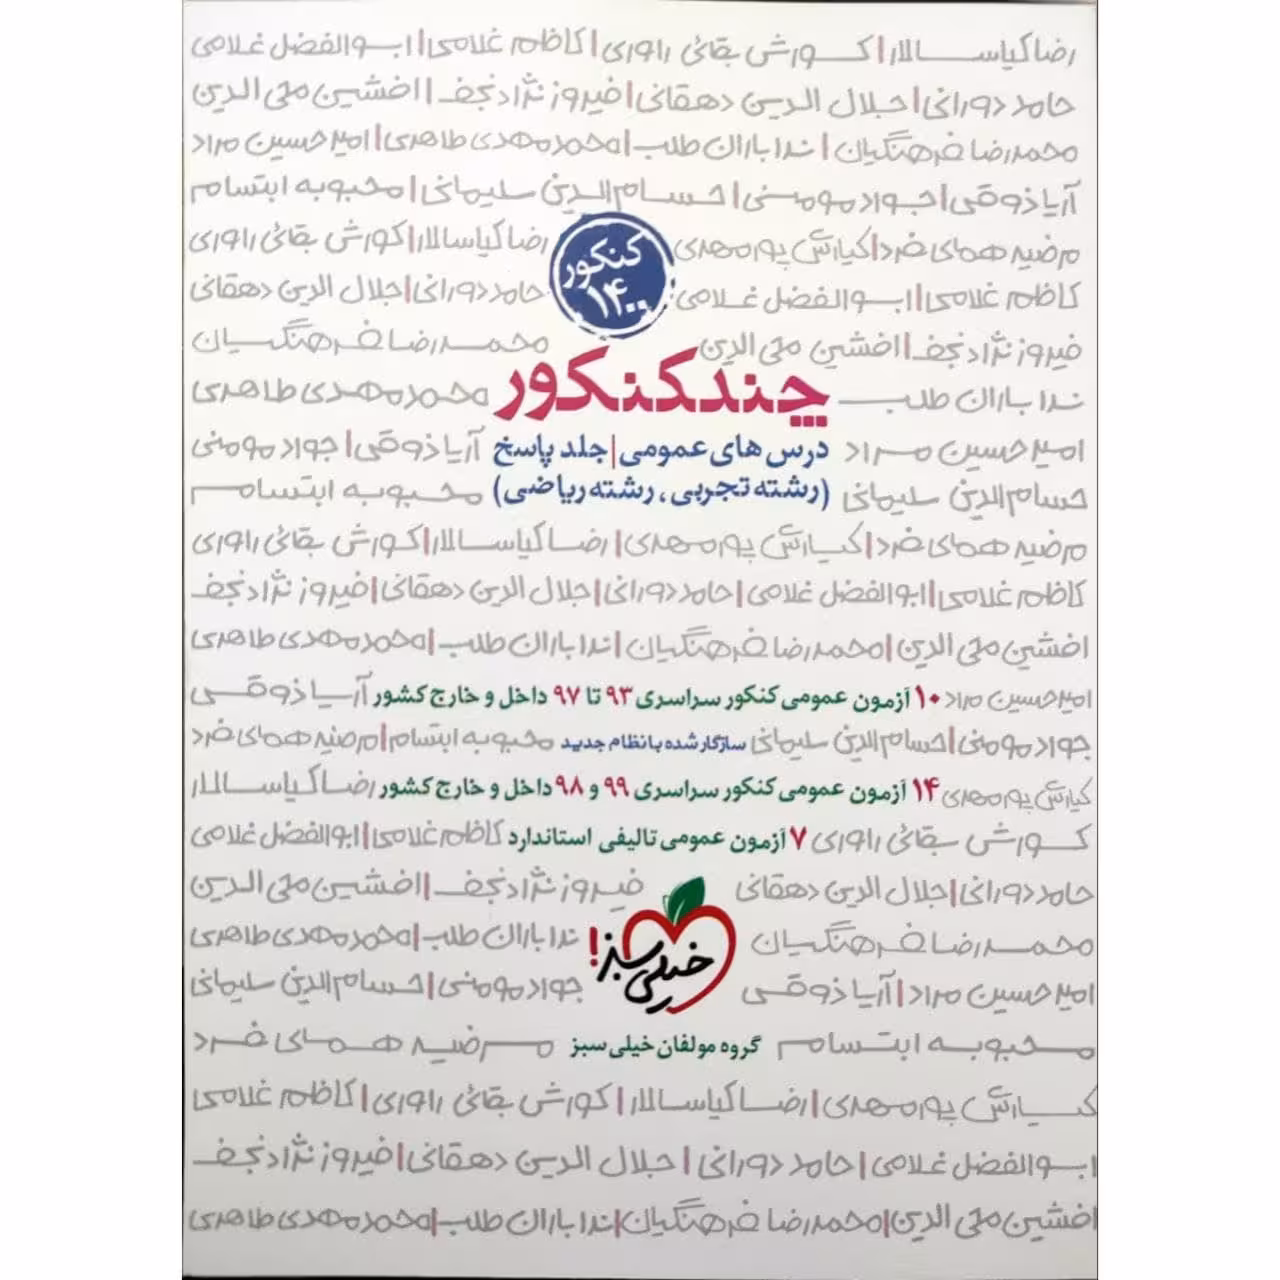 رضا کیاسالار | کورش بقائی راوری | کاظم غلامی | ابوالفضل غلامی
حامد دورانی | جلال الدین دهقانی | فیروز نژادنجف | افشین محی الدین
محمدرضا فرهنگیان | ندا باران طلب | محمدمهدی طاهری | امیرحسین مراد
آریا ذوقی | جواد مومنی | حسام الدین سلیمانی | محبوبه ابتسام
مرضیه همای فرد | کیارش پورمهدی
رضا کیاسالار | کورش بقائی راوری
کنکور
۱۴۰۰
کاظم غلامی | ابوالفضل غلامی
حامد دورانی | جلال الدین دهقانی
فیروز نژادنجف | افشین محی الدین
محمدرضا فرهنگیان
چند کنکور
ندا باران طلب
محمدمهدی طاهری
امیرحسین مراد
درس های عمومی | جلد پاسخ
آریا ذوقی | جواد مومنی
حسام الدین سلیمانی
(رشته تجربی، رشته ریاضی)
محبوبه ابتسام
مرضیه همای فرد | کیارش پورمهدی | رضا کیاسالار | کورش بقائی راوری
کاظم غلامی | ابوالفضل غلامی | حامد دورانی | جلال الدین دهقانی | فیروز نژادنجف
افشین محی الدین | محمدرضا فرهنگیان | ندا باران طلب | محمدمهدی طاهری
امیرحسین مراد ۱۰ آزمون عمومی کنکور سراسری ۹۳ تا ۹۷ داخل و خارج کشور آریا ذوقی
جواد مومنی | حسام الدین سلیمانی سازگار شده با نظام جدید محبوبه ابتسام | مرضیه همای فرد
کیارش پورمهدی ۱۴ آزمون عمومی کنکور سراسری ۹۹ و ۹۸ داخل و خارج کشور رضا کیاسالار
کورش بقائی راوری ۷ آزمون عمومی تالیفی استاندارد کاظم غلامی | ابوالفضل غلامی
حامد دورانی | جلال الدین دهقانی
فیروز نژادنجف | افشین محی الدین
محمدرضا فرهنگیان
ندا باران طلب | محمدمهدی طاهری
خیلی سبز!
امیرحسین مراد | آریا ذوقی
جواد مومنی | حسام الدین سلیمانی
محبوبه ابتسام گروه مولفان خیلی سبز مرضیه همای فرد
کیارش پورمهدی | رضا کیاسالار | کورش بقائی راوری | کاظم غلامی
ابوالفضل غلامی | حامد دورانی | جلال الدین دهقانی | فیروز نژادنجف
افشین محی الدین | محمدرضا فرهنگیان | ندا باران طلب | محمدمهدی طاهری